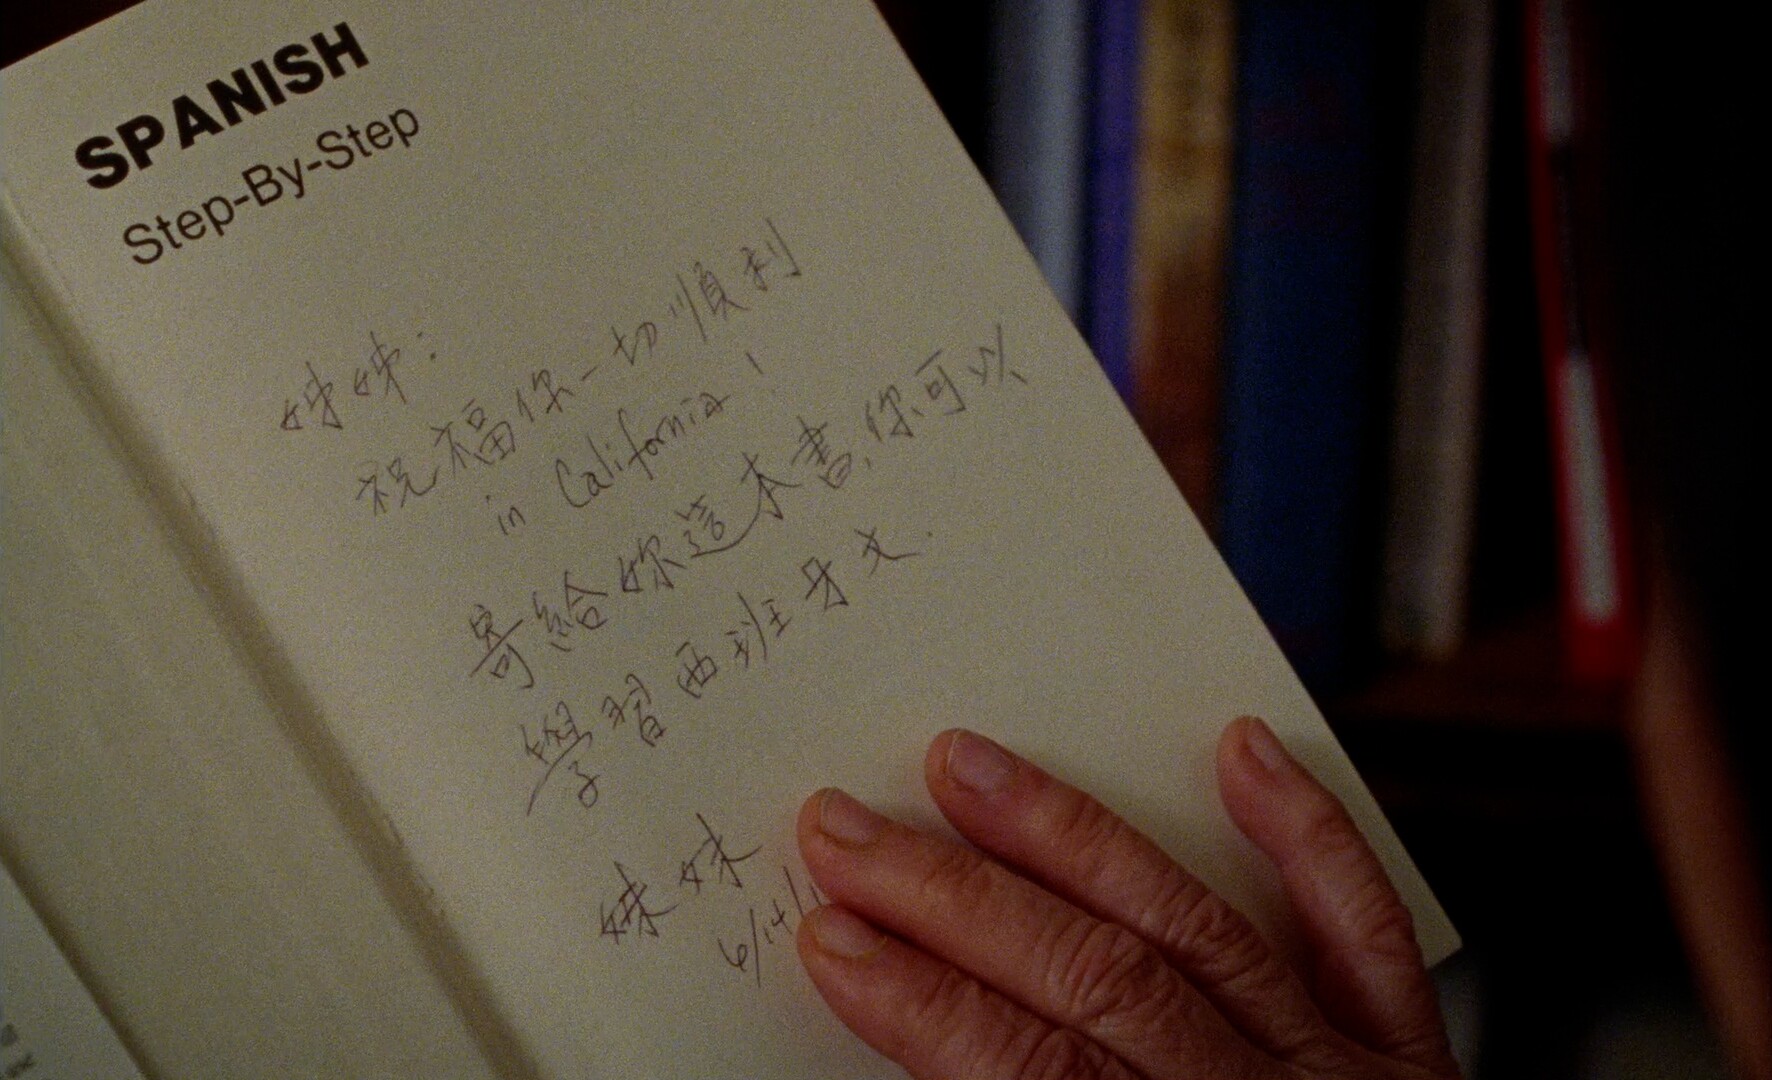 SPANISH
Step-By-Step
姊姊：
祝福你一切順利
in California!
寄給妳這本書,你可以
學習西班牙文.
妹妹
6/14/1